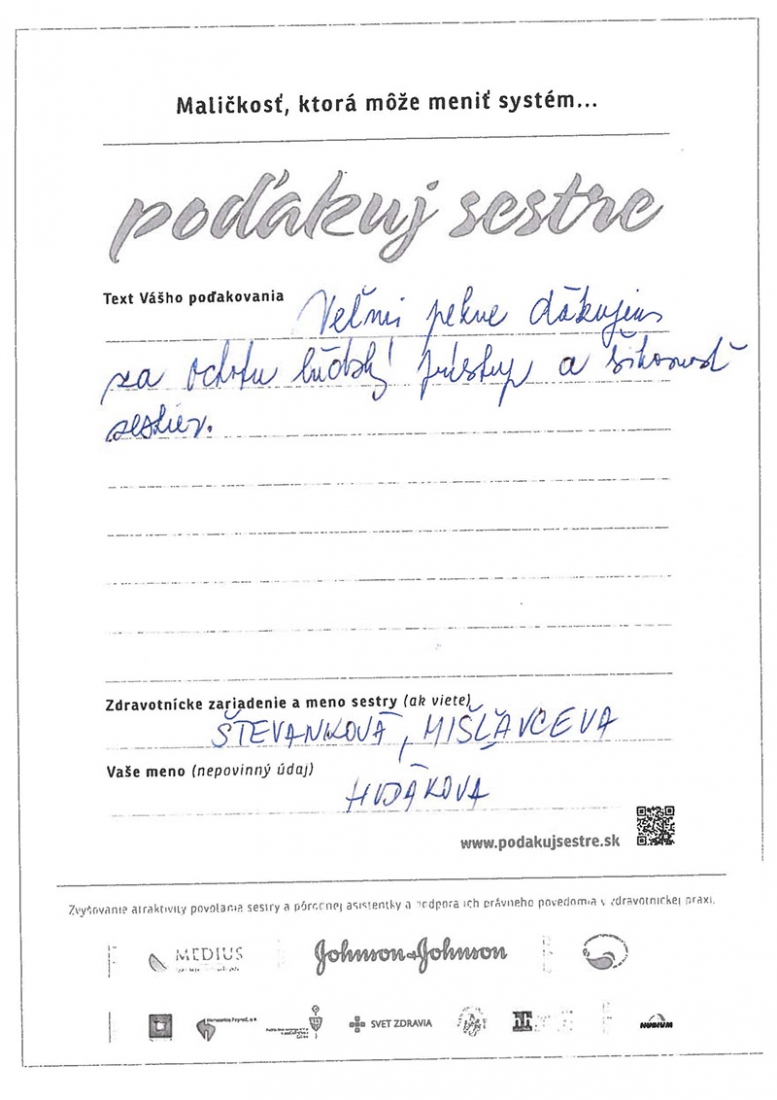 Maličkosť, ktorá môže meniť systém...
poďakuj sestre
Text Vášho poďakovania Veľmi pekne ďakujem
za ochotu ľudský prístup a šikovnosť
sestier.
Zdravotnícke zariadenie a meno sestry (ak viete)
ŠTEVANKOVÁ, MIŠĽAVCEVA
Vaše meno (nepovinný údaj)
HUDÁKOVA
www.podakujsestre.sk
Zvyšovanie atraktivity povolania sestry a pôrodnej asistentky a podpora ich právneho povedomia v zdravotníckej praxi.
MEDIUS
Johnson & Johnson
SVET ZDRAVIA
NUDIUM